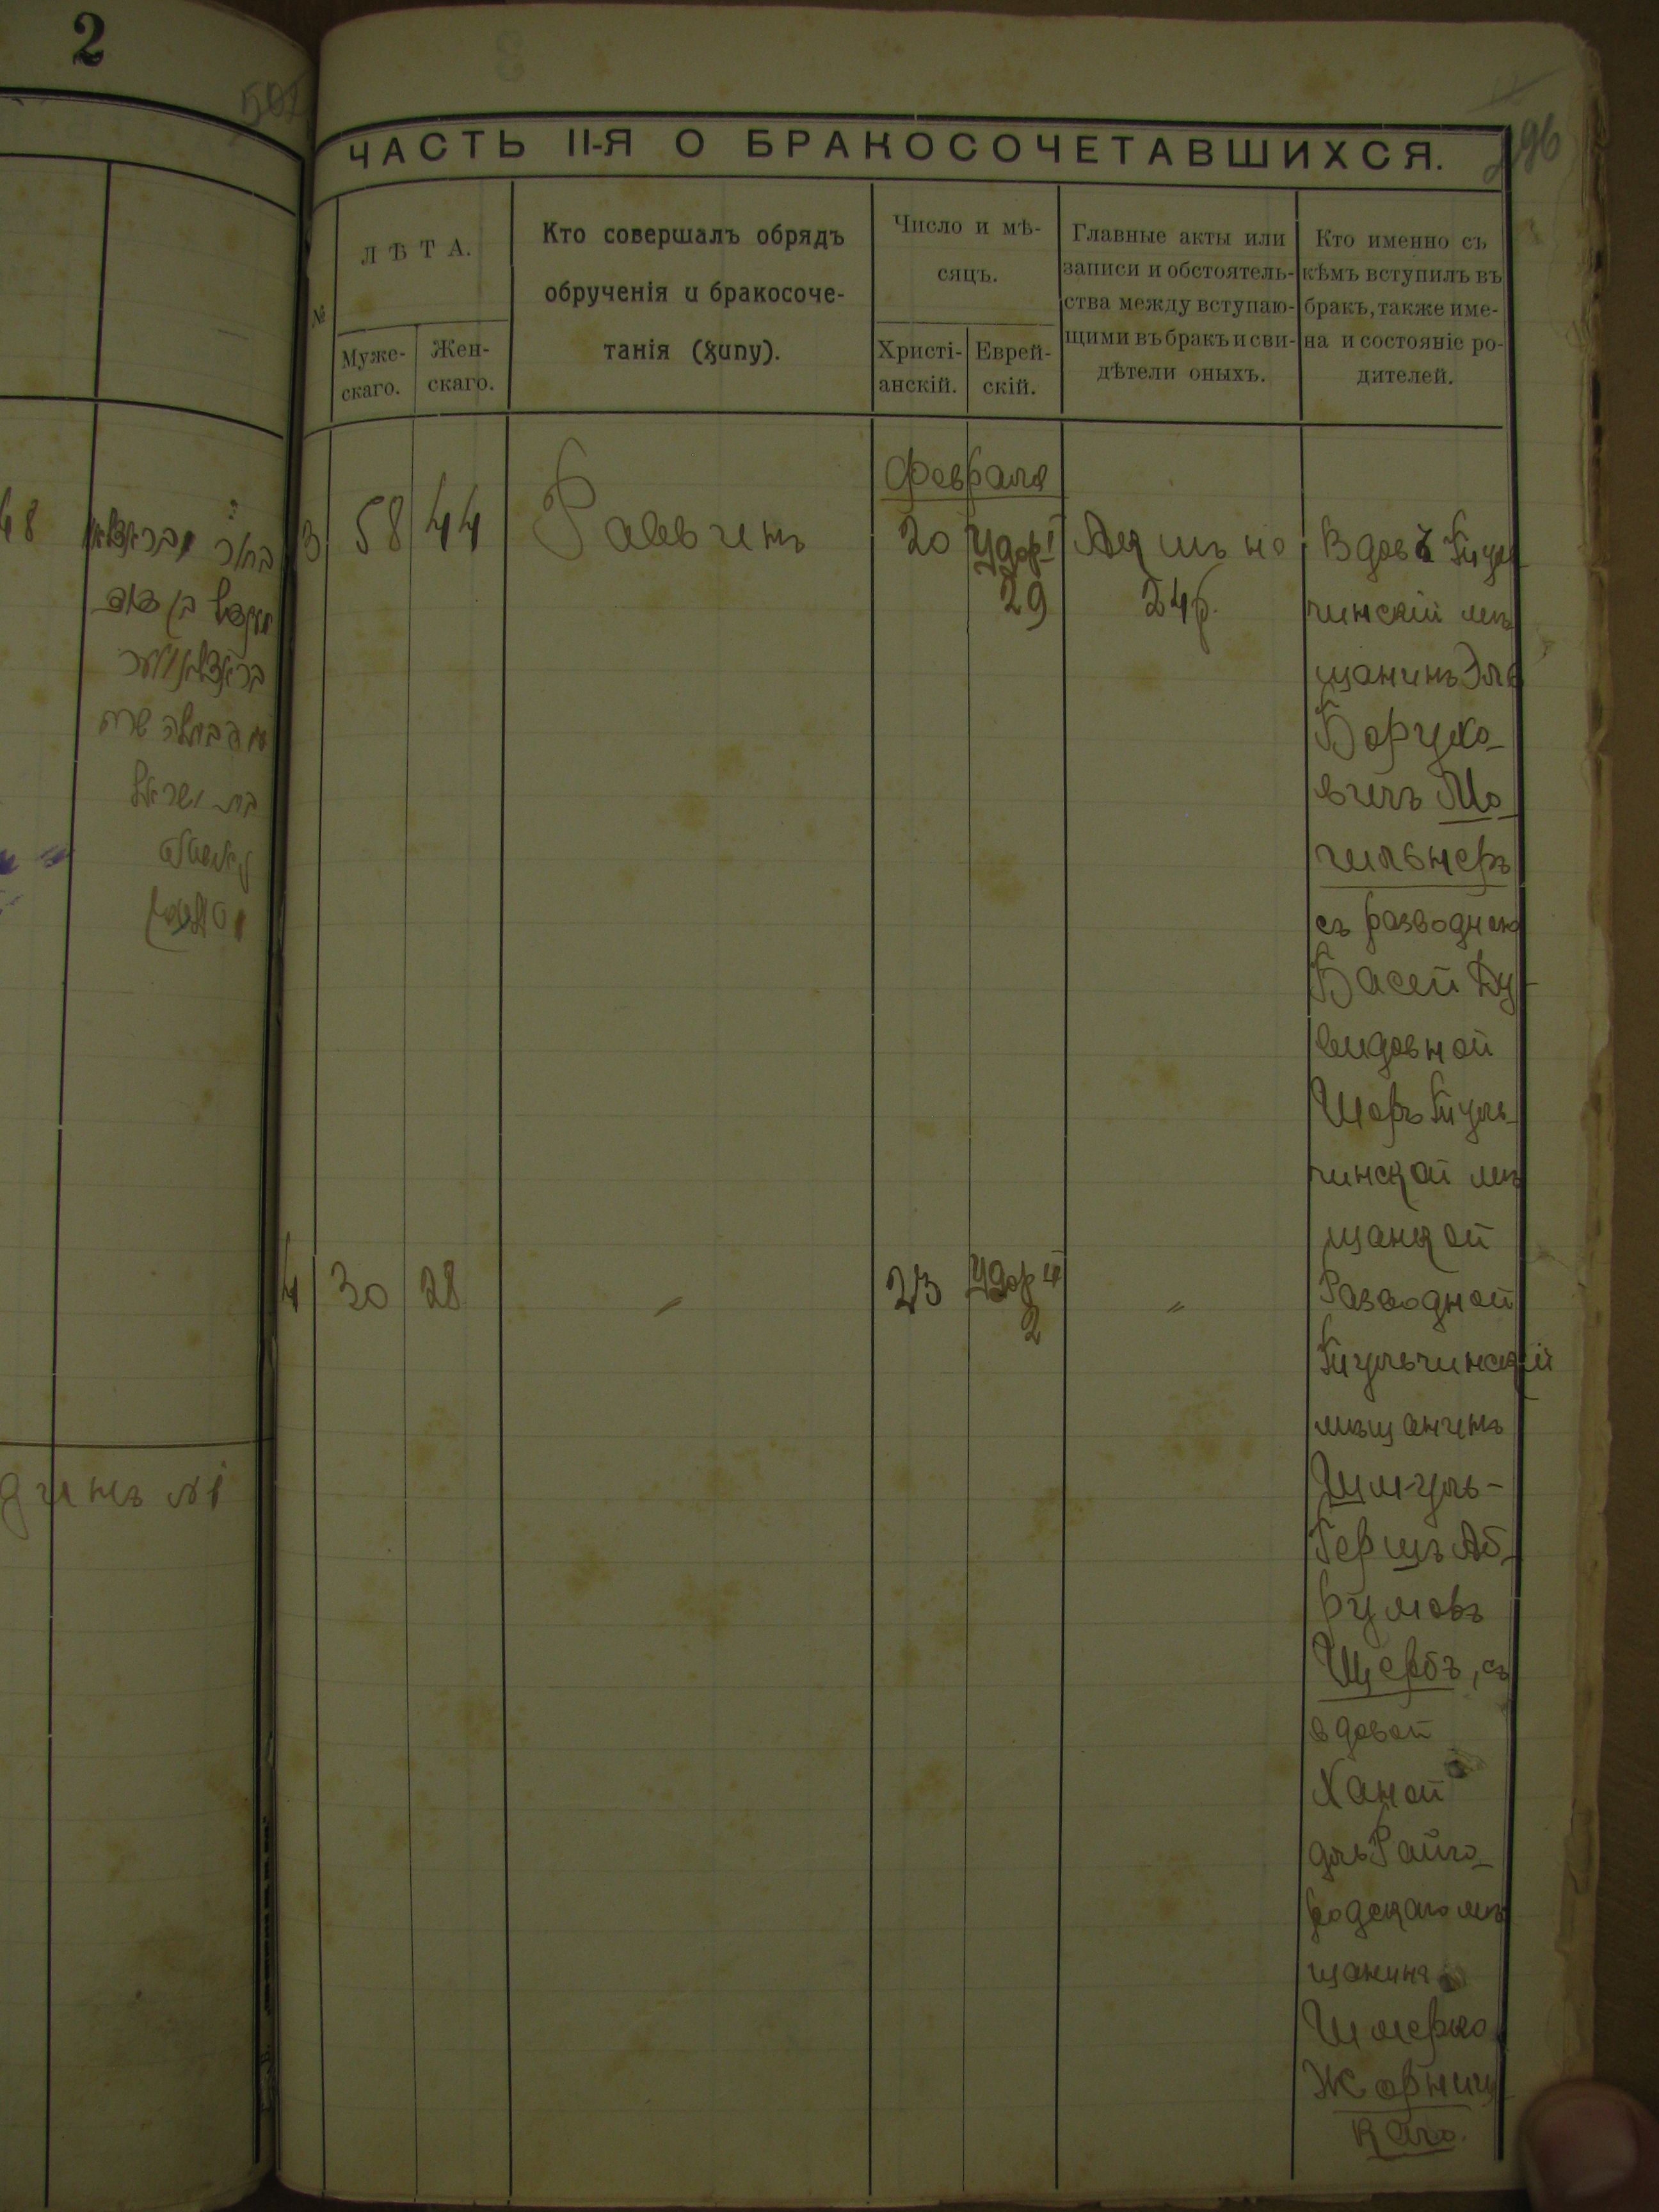 2
ЧАСТЬ II-Я О БРАКОСОЧЕТАВШИХСЯ.
96
№
ЛѢТА.
Муже-
скаго.
Жен-
скаго.
Кто совершалъ обрядъ
обрученія и бракосоче-
танія (хупу).
Число и мѣ-
сяцъ.
Христі-
анскій.
Еврей-
скій.
Главные акты или
записи и обстоятель-
ства между вступаю-
щими въ бракъ и сви-
дѣтели оныхъ.
Кто именно съ
кѣмъ вступилъ въ
бракъ, также име-
на и состояніе ро-
дителей.
48
בת ישראל
3
58
44
Раввинъ
Февраля
20
Удор I
29
на
24р.
Вдовъ Туль
чинскій мѣ
щанинъ Эль
Борухо-
вичъ Мо
гильнеръ
съ разводною
Басей Ду-
видовной
Шоръ Туль-
чинской мѣ
щанкой
4
30
28
"
23
Удор II
2
"
Разводной
Тульчинскій
мѣщанинъ
Шмуль-
Гершъ Аб-
румовъ
Щербъ, съ
вдовой
Ханой
дль Райго-
родскаго мѣ
щанина
Шмерко
Жорниц-
каго.
динъ №1